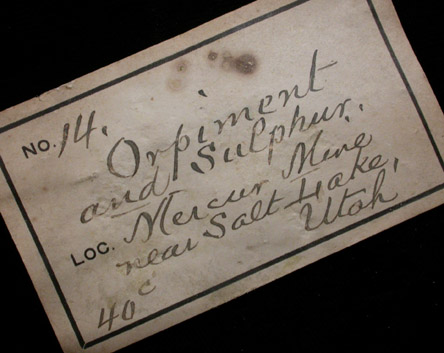 NO. 14.
Orpiment
and Sulphur.
LOC. Mercur Mine
near Salt Lake,
Utah
40c